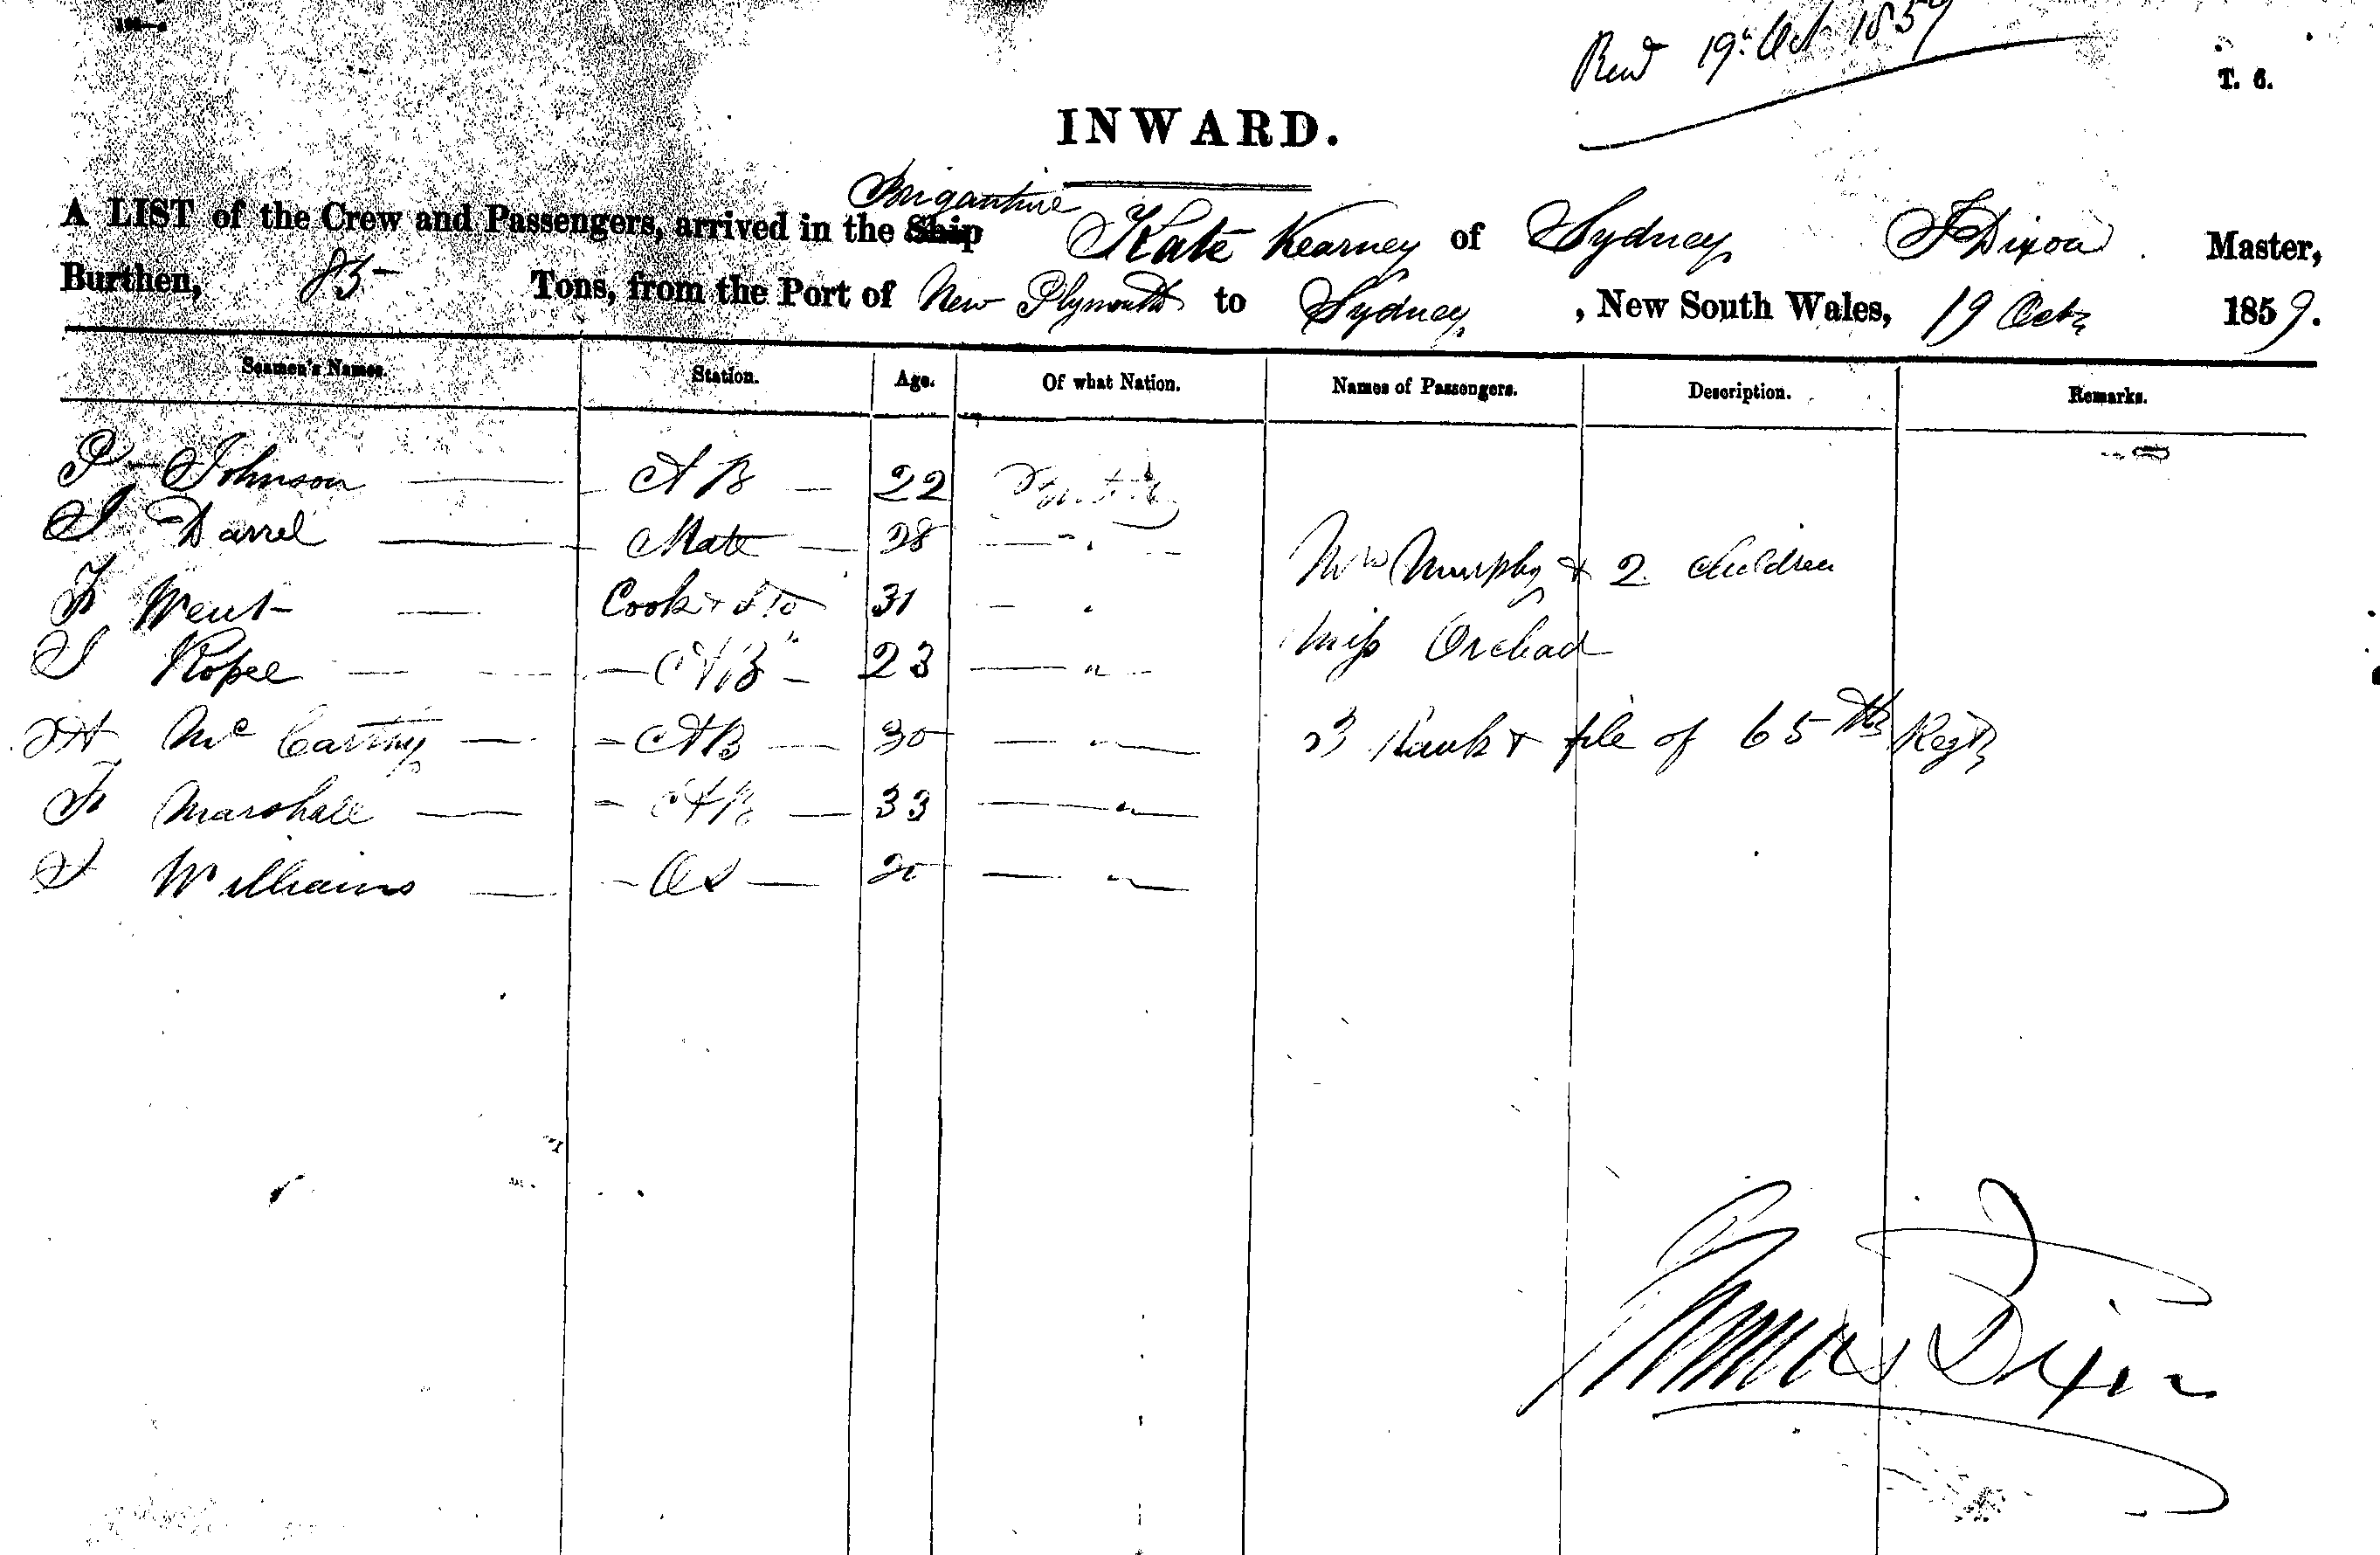 Recd 19th Oct 1859
T. 6.
INWARD.
Brigantine
A LIST of the Crew and Passengers, arrived in the Ship Kate Kearney of Sydney Dixon Master,
Burthen, 85 Tons, from the Port of New Plymouth to Sydney, New South Wales, 19 Oct 1859.
Seamen's Names. Station. Age. Of what Nation. Names of Passengers. Description. Remarks.
P Johnson A B 22 British
Darrel Mate 28 "
Mrs Murphy & 2 children
Went Cook & Std 31 "
Miss Orchad
Roper AB 23 "
H Mc Carthy AB 30 "
3 Rank & file of 65th Regt
Marshall AB 33 "
Williams OS 20 "
Dixon